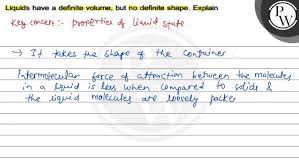 Liquids have a definite volume, but no definite shape. Explain
PW
Key concept:- Properties of liquid state
→ It takes the shape of the container
Intermolecular force of attraction between the molecules
in a liquid is less when compared to solids &
the liquid molecules are loosely packed